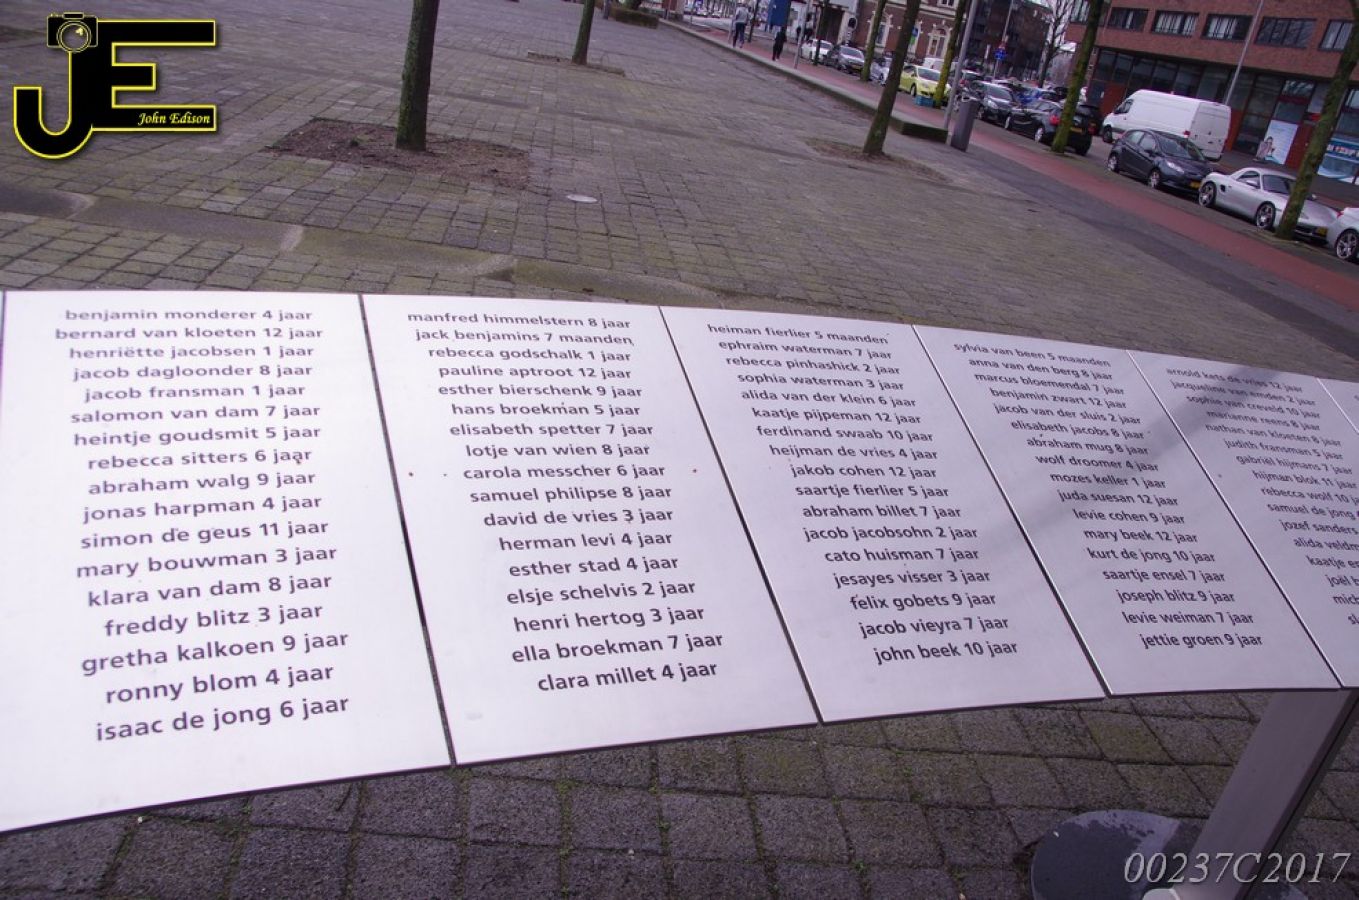 John Edison
benjamin monderer 4 jaar
bernard van kloeten 12 jaar
henriëtte jacobsen 1 jaar
jacob dagloonder 8 jaar
jacob fransman 1 jaar
salomon van dam 7 jaar
heintje goudsmit 5 jaar
rebecca sitters 6 jaar
abraham walg 9 jaar
jonas harpman 4 jaar
simon de geus 11 jaar
mary bouwman 3 jaar
klara van dam 8 jaar
freddy blitz 3 jaar
gretha kalkoen 9 jaar
ronny blom 4 jaar
isaac de jong 6 jaar
manfred himmelstern 8 jaar
jack benjamins 7 maanden
rebecca godschalk 1 jaar
pauline aptroot 12 jaar
esther bierschenk 9 jaar
hans broekman 5 jaar
elisabeth spetter 7 jaar
lotje van wien 8 jaar
carola messcher 6 jaar
samuel philipse 8 jaar
david de vries 3 jaar
herman levi 4 jaar
esther stad 4 jaar
elsje schelvis 2 jaar
henri hertog 3 jaar
ella broekman 7 jaar
clara millet 4 jaar
heiman fierlier 5 maanden
ephraim waterman 7 jaar
rebecca pinhashick 2 jaar
sophia waterman 3 jaar
alida van der klein 6 jaar
kaatje pijpeman 12 jaar
ferdinand swaab 10 jaar
heijman de vries 4 jaar
jakob cohen 12 jaar
saartje fierlier 5 jaar
abraham billet 7 jaar
jacob jacobsohn 2 jaar
cato huisman 7 jaar
jesayes visser 3 jaar
felix gobets 9 jaar
jacob vieyra 7 jaar
john beek 10 jaar
sylvia van been 5 maanden
anna van den berg 8 jaar
marcus bloemendal 7 jaar
benjamin zwart 12 jaar
jacob van der sluis 2 jaar
elisabeth jacobs 8 jaar
abraham mug 8 jaar
wolf droomer 4 jaar
mozes keller 1 jaar
juda suesan 12 jaar
levie cohen 9 jaar
mary beek 12 jaar
kurt de jong 10 jaar
saartje ensel 7 jaar
joseph blitz 9 jaar
levie weiman 7 jaar
jettie groen 9 jaar
arnold kets de vries 12 jaar
jacqueline van emden 2 jaar
sophie van creveld 10 jaar
marianne reens 8 jaar
nathan van kloeten 8 jaar
judith fransman 5 jaar
gabriël hijmans 7 jaar
hijman blok 11 jaar
rebecca wolf 10
samuel de jong
jozef sanders
alida
kaatje
joël
00237C2017